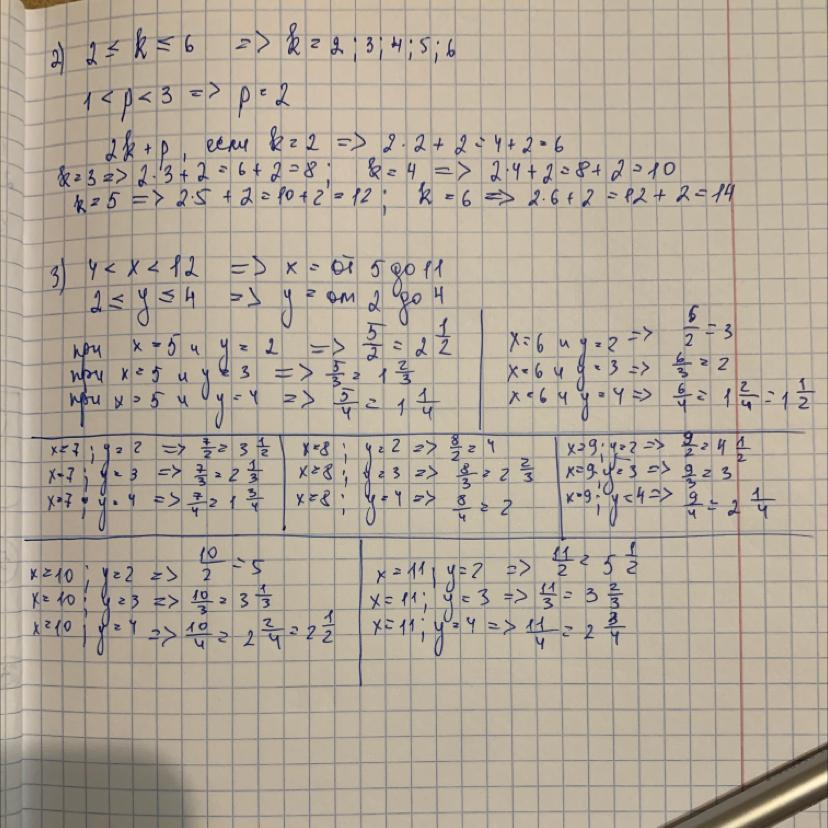 2) 2 ≤ k ≤ 6 => k = 2 ; 3 ; 4 ; 5 ; 6
1 < p < 3 => p = 2
2k + p, если k = 2 => 2·2 + 2 = 4 + 2 = 6
k = 3 => 2·3 + 2 = 6 + 2 = 8; k = 4 => 2·4 + 2 = 8 + 2 = 10
k = 5 => 2·5 + 2 = 10 + 2 = 12; k = 6 => 2·6 + 2 = 12 + 2 = 14
3) 4 < x < 12 => x = от 5 до 11
2 ≤ y ≤ 4 => y = от 2 до 4
при x = 5 и y = 2 => 5/2 = 2 1/2
при x = 5 и y = 3 => 5/3 = 1 2/3
при x = 5 и y = 4 => 5/4 = 1 1/4
x = 6 и y = 2 => 6/2 = 3
x = 6 и y = 3 => 6/3 = 2
x = 6 и y = 4 => 6/4 = 1 2/4 = 1 1/2
x = 7 ; y = 2 => 7/2 = 3 1/2
x = 7 ; y = 3 => 7/3 = 2 1/3
x = 7 ; y = 4 => 7/4 = 1 3/4
x = 8 ; y = 2 => 8/2 = 4
x = 8 ; y = 3 => 8/3 = 2 2/3
x = 8 ; y = 4 => 8/4 = 2
x = 9 ; y = 2 => 9/2 = 4 1/2
x = 9 ; y = 3 => 9/3 = 3
x = 9 ; y = 4 => 9/4 = 2 1/4
x = 10 ; y = 2 => 10/2 = 5
x = 10 ; y = 3 => 10/3 = 3 1/3
x = 10 ; y = 4 => 10/4 = 2 2/4 = 2 1/2
x = 11 ; y = 2 => 11/2 = 5 1/2
x = 11 ; y = 3 => 11/3 = 3 2/3
x = 11 ; y = 4 => 11/4 = 2 3/4